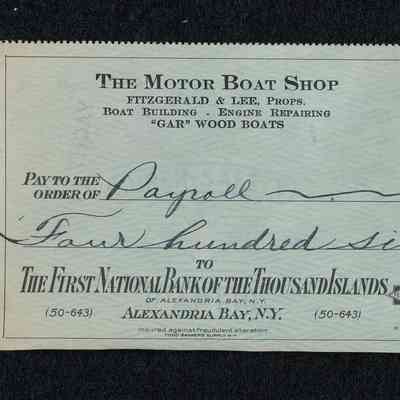 THE MOTOR BOAT SHOP
FITZGERALD & LEE, PROPS.
BOAT BUILDING - ENGINE REPAIRING
"GAR" WOOD BOATS
PAY TO THE
ORDER OF Payroll
Four hundred si
TO
THE FIRST NATIONAL BANK OF THE THOUSAND ISLANDS
OF ALEXANDRIA BAY, N.Y.
(50-643) ALEXANDRIA BAY, N.Y. (50-643)
insured against fraudulent alteration
TODD BANKERS SUPPLY N.Y.